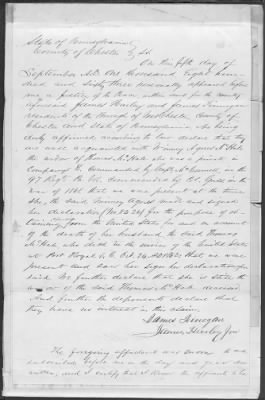 State of Pennsylvania
County of Chester } S.S.
On this fifth day of
September A.D. One thousand Eight hun-
dred and Sixty three personally appeared before
me a Notary of the Peace within and for the County
aforesaid James Hurley and James Finnegan
residents of the Borough of West Chester County of
Chester and State of Pennsylvania who being
duly affirmed according to law declare that they
are well acquainted with Agnes McHale
the widow of Thomas McHale who was a private in
Company C. Commanded by Capt. McConnell in the
97 Regt. Pa. Vol. Commanded by Col. Guss in the
war of 1861 that we were present at the time
She, the said Agnes made and signed
her declaration (No. 8251) for the purpose of ob-
taining from the United States on account
of the death of her husband the said Thomas
McHale, who died in the service of the United States
at Port Royal S.C. Oct. 24 AD 1862 that we were
present and saw her sign her declaration afore-
said. We further declare that she is the
widow of the said Thomas McHale deceased
And further the deponents declare that
they have no interest in this claim.
James Finegan
James Hurley Jnr
The foregoing affidavit was sworn to and
subscribed before me on the day and year
written, and I certify that I know the affiants to be